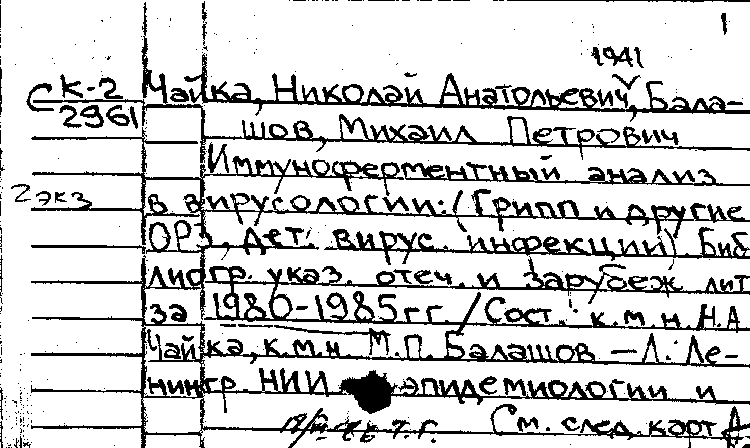 1
1941
К-2 Чайка, Николай Анатольевич, Бала-
С 2961 шов, Михаил Петрович
Иммуноферментный анализ
2 экз в вирусологии: (Грипп и другие
ОРЗ, дет. вирус. инфекции) Биб
лиогр. указ. отеч. и зарубеж лит
за 1980-1985гг. / Сост.: к.м.н. Н.А
Чайка, к.м.н. М.П. Балашов — Л.: Ле-
нингр. НИИ эпидемиологии и
См. след. карт